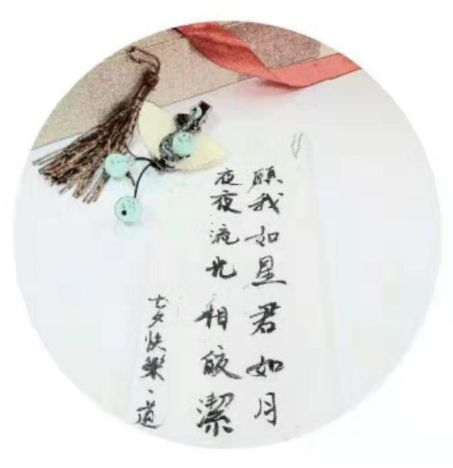 願我如星君如月
夜夜流光相皎潔
七夕快樂、道